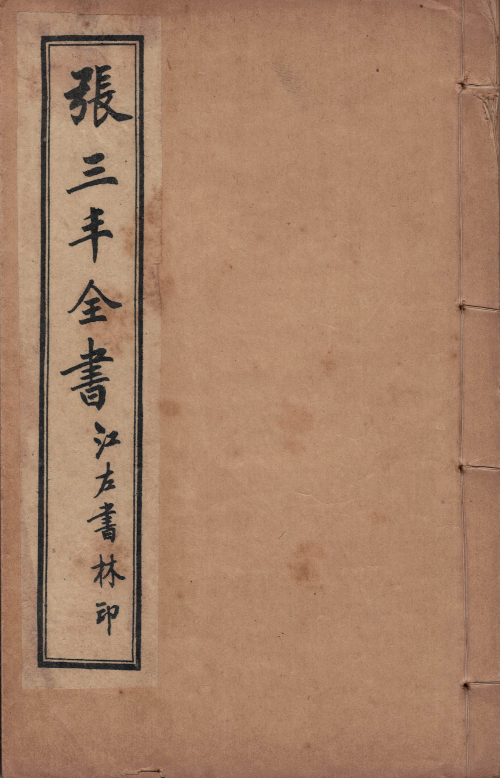 張三丰全書江左書林印